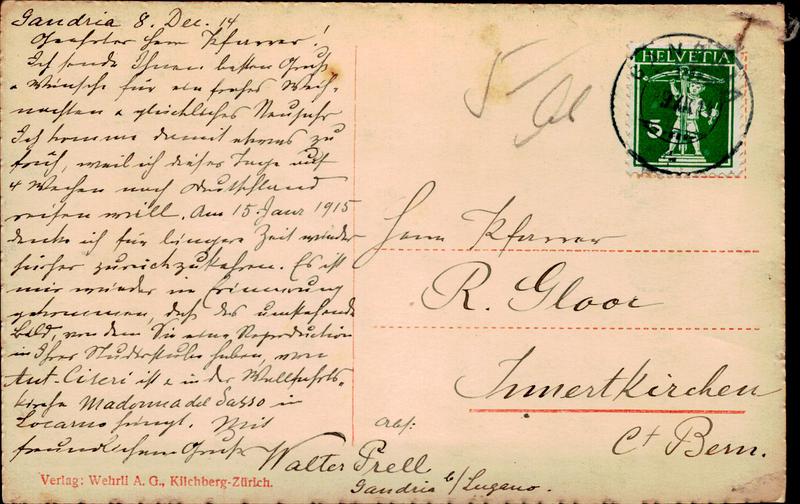 Gandria 8. Dec. 14
Geehrter Herr Pfarrer!
Ich sende Ihnen besten Gruß
& Wünsche für ein frohes Weih-
nachten & glückliches Neujahr
Ich komme damit etwas zu
früh, weil ich dieser Tage auf
4 Wochen nach Deutschland
reisen will. Am 15. Janr 1915
denke ich für längere Zeit wieder
hieher zurückzukehren. Es ist
mir wieder in Erinnerung
gekommen, daß das umstehende
Bild, von dem Sie eine Reproduction
in Ihrer Studierstube haben, von
Ant. Ciseri ist & in der Wallfahrts-
kirche Madonna del Sasso in
Locarno hängt. Mit
freundlichem Gruße
Walter Prell
Abs:
Gandria b/Lugano.
HELVETIA
5
Herrn Pfarrer
R. Gloor
Innertkirchen
Ct Bern.
Verlag: Wehrli A. G., Kilchberg-Zürich.